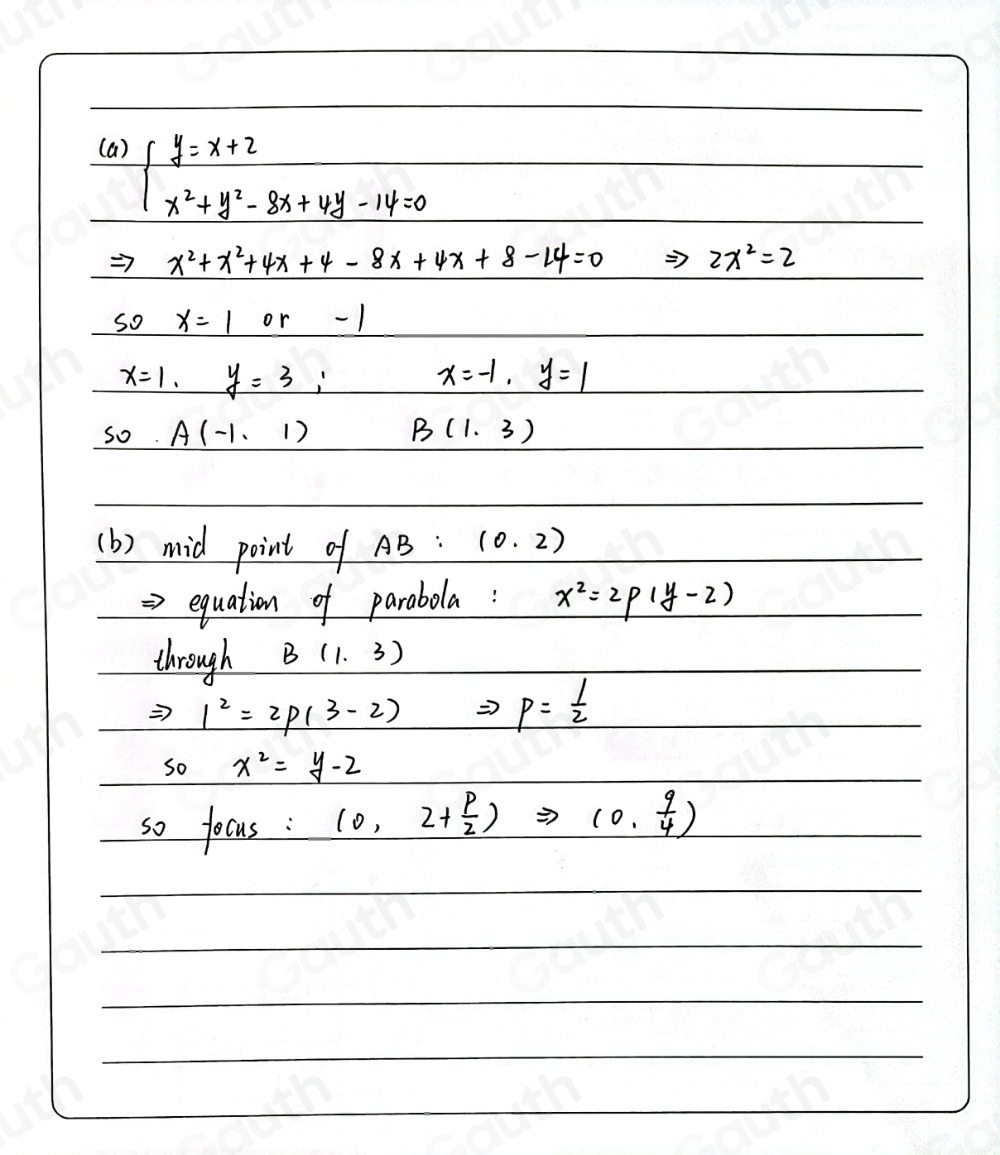 (a) { y = x + 2
x² + y² - 8x + 4y - 14 = 0
⇒ x² + x² + 4x + 4 - 8x + 4x + 8 - 14 = 0 ⇒ 2x² = 2
so x = 1 or -1
x = 1. y = 3 ; x = -1. y = 1
so A (-1. 1) B (1. 3)
(b) mid point of AB : (0. 2)
⇒ equation of parabola : x² = 2p(y - 2)
through B (1. 3)
⇒ 1² = 2p(3 - 2) ⇒ p = 1/2
so x² = y - 2
so focus : (0, 2 + p/2) ⇒ (0. 9/4)